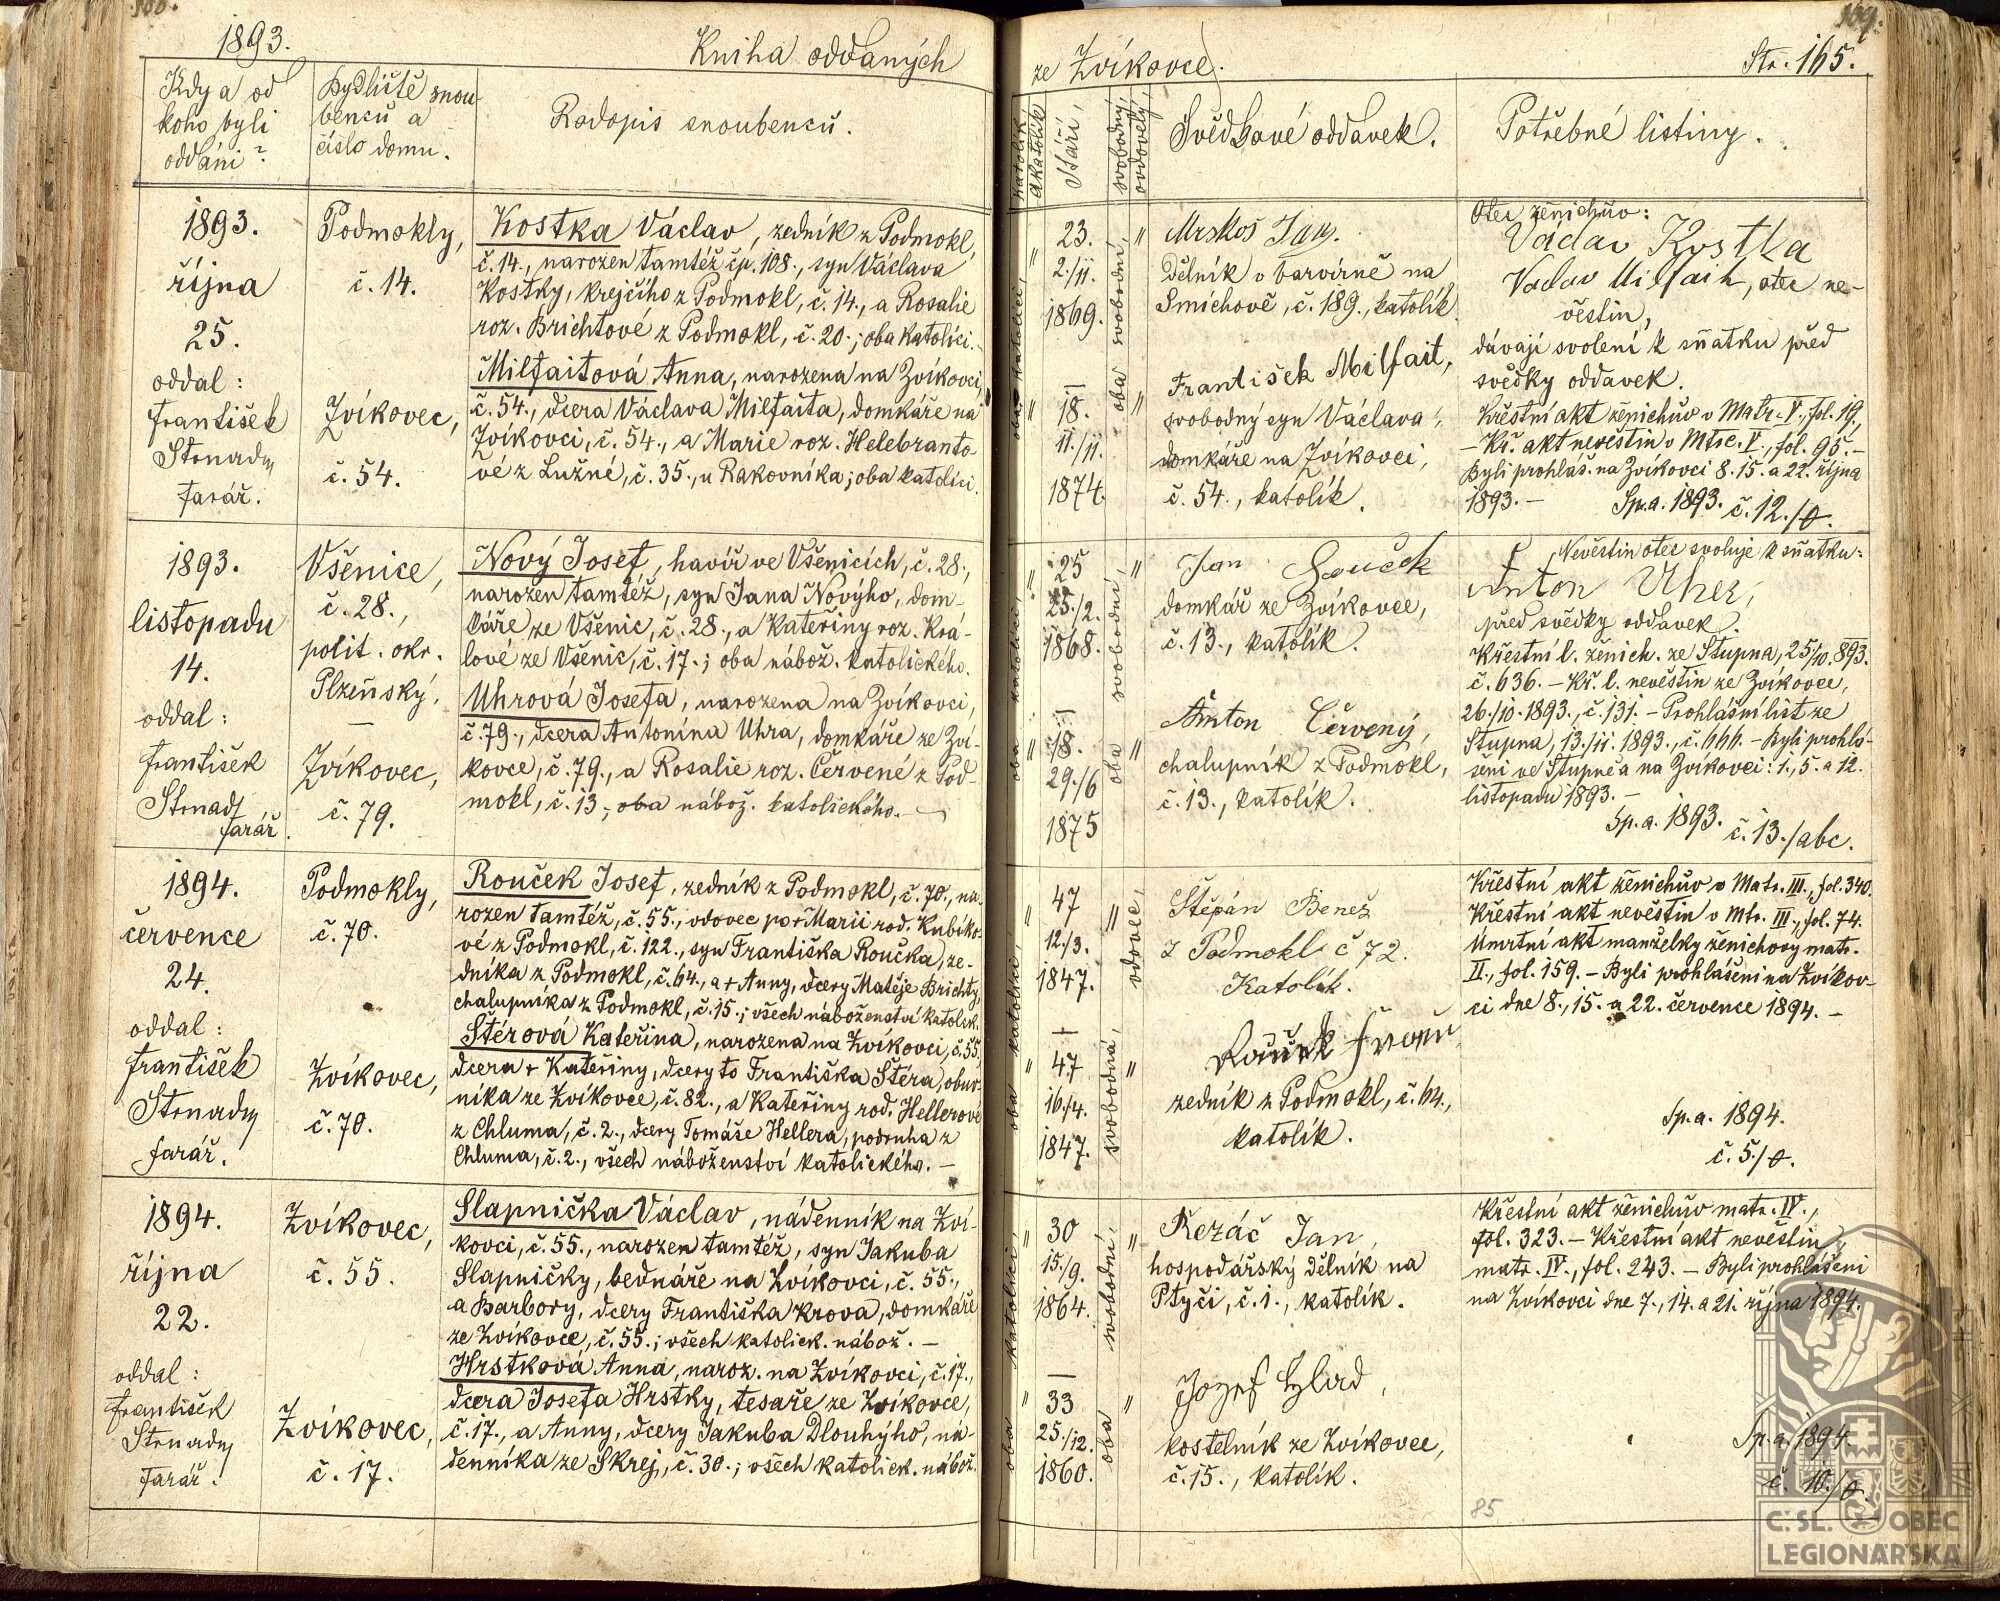 1893.
Kniha oddaných
Kdy a od
koho byli
oddáni?
Bydliště snou-
benců a
číslo domu.
Rodopis snoubenců.
1893.
října
25.
oddal:
František
Strnady
farář.
Podmokly,
č. 14.
Zvíkovec,
č. 54.
Kostka Václav, zedník z Podmokl,
č. 14., narozen tamtéž čp. 108., syn Václava
Kostky, krejčího z Podmokl, č. 14., a Rosalie
roz. Brichtové z Podmokl, č. 20.; oba katolíci.-
Milfaitová Anna, narozena na Zvíkovci,
č. 54., dcera Václava Milfaita, domkáře na
Zvíkovci, č. 54., a Marie roz. Helebranto-
vé z Lužné, č. 35., u Rakovníka; oba katolíci.
1893.
listopadu
14.
oddal:
František
Strnady
farář.
Všenice,
č. 28.,
polit. okr.
Plzeňský,
—
Zvíkovec,
č. 79.
Nový Josef, havíř ve Všenicích, č. 28.,
narozen tamtéž, syn Jana Nového, dom-
káře ze Všenic, č. 28., a Kateřiny roz. Krá-
lové ze Všenic, č. 17.; oba nábož. katolického.
Uhrová Josefa, narozena na Zvíkovci,
č. 79., dcera Antonína Uhra, domkáře ze Zví-
kovce, č. 79., a Rosalie roz. Červené z Pod-
mokl, č. 13.; oba nábož. katolického. —
1894.
července
24.
oddal:
František
Strnady
farář.
Podmokly,
č. 70.
Zvíkovec,
č. 70.
Rouček Josef, zedník z Podmokl, č. 70., na-
rozen tamtéž, č. 55., vdovec po + Marii rod. Kubíko-
vé z Podmokl, č. 122., syn Františka Roučka, ze-
dníka z Podmokl, č. 64., a + Anny, dcery Matěje Brichty,
chalupníka z Podmokl, č. 15.; všech náboženství katolick.
Štěrová Kateřina, narozena na Zvíkovci, č. 55.
dcera + Kateřiny, dcery to Františka Štěra, obuv-
níka ze Zvíkovce, č. 82., a Kateřiny rod. Hellerové
z Chluma, č. 2., dcery Tomáše Hellera, podruha z
Chluma, č. 2., všech náboženství katolického. —
1894.
října
22.
oddal:
František
Strnady
farář.
Zvíkovec,
č. 55.
Zvíkovec,
č. 17.
Slapnička Václav, nádenník na Zví-
kovci, č. 55., narozen tamtéž, syn Jakuba
Slapničky, bednáře na Zvíkovci, č. 55.,
a Barbory, dcery Františka Krova, domkáře
ze Zvíkovce, č. 55.; všech katolick. nábož. —
Hrstková Anna, naroz. na Zvíkovci, č. 17.,
dcera Josefa Hrstky, tesaře ze Zvíkovce,
č. 17., a Anny, dcery Jakuba Dlouhýho, ná-
denníka ze Skrej, č. 30.; všech katolick. nábož.
ze Zvíkovce.
Str. 165.
katolík
akatolík
Stáří,
svobodný,
ovdovělý,
Svědkové oddavek.
Potřebné listiny.
oba katolíci,
23.
2./11.
1869.
—
18.
11./11.
1874.
oba svobodní,
Mrskoš Jan.
dělník v barvírně na
Smíchově, č. 189., katolík.
František Milfait,
svobodný syn Václava,
domkáře na Zvíkovci,
č. 54., katolík.
Otec ženichův:
Václav Kostka
Václav Milfait, otec ne-
věstin,
dávají svolení k sňatku před
svědky oddavek.
Křestní akt ženichův v Matr. V., fol. 19.,
— Kř. akt nevěstin v Mtrc. V., fol. 95. —
Byli prohláš. na Zvíkovci 8. 15. a 22. října
1893. — Sp. a. 1893. č. 12./
oba katolíci,
25
25./2.
1868.
—
18.
29./6
1875
oba svobodní,
Jan Souček
domkář ze Zvíkovce,
č. 13., katolík.
Anton Červený,
chalupník z Podmokl,
č. 13., katolík.
Nevěstin otec svoluje k sňatku:
Anton Uher,
před svědky oddavek.
Křestní l. ženich. ze Stupna, 25/10. 893.
č. 636. — Kř. l. nevěstin ze Zvíkovce,
26./10. 1893., č. 131. — Prohlášní list ze
Stupna, 13./11. 1893., č. 666. — Byli prohlá-
šeni ve Stupně a na Zvíkovci: 1., 5. a 12.
listopadu 1893. —
Sp. a. 1893. č. 13./abc.
oba katolíci,
47
12./3.
1847.
—
47
16./4.
1847.
vdovec,
svobodná,
Štěpán Beneš
z Podmokl č 72.
Katolík.
Rouček
zedník z Podmokl, č. 64.,
katolík.
Křestní akt ženichův v Matr. III., fol. 340.
Křestní akt nevěstin v Mtr. III., fol. 74.
Úmrtní akt manželky ženichovy matr.
II., fol. 159. — Byli prohlášeni na Zvíkov-
ci dne 8., 15. a 22. července 1894. —
Sp. a. 1894.
č. 5./
oba katolíci,
30
15./9.
1864.
—
33
25./12.
1860.
oba svobodní,
Řezáč Jan,
hospodářský dělník na
Ptyči, č. 1., katolík.
Jozef Hlad,
kostelník ze Zvíkovce,
č. 15., katolík.
Křestní akt ženichův matr. IV.,
fol. 323. — Křestní akt nevěstin
matr. IV., fol. 243. — Byli prohlášeni
na Zvíkovci dne 7., 14. a 21. října 1894.
Sp. a. 1894
č. 10./
85
Č. SL. OBEC
LEGIONÁŘSKÁ